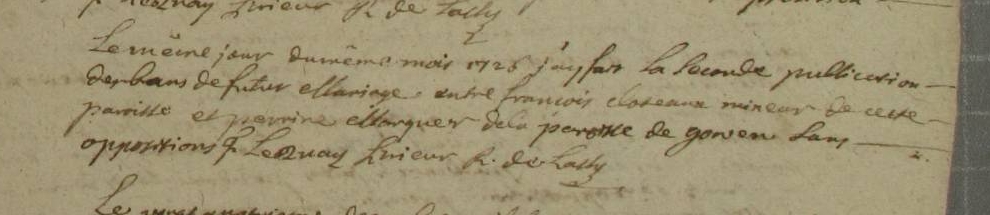 prieur R. de Lassy
Le même jour du même mois 1725 j'ay fait la seconde publication
des bans de futur Mariage entre francois eloseaux mineur de cette
paroisse et perrine Marquer dela paroisse de goven sans
oppositions f. prieur R. de Lassy
Le